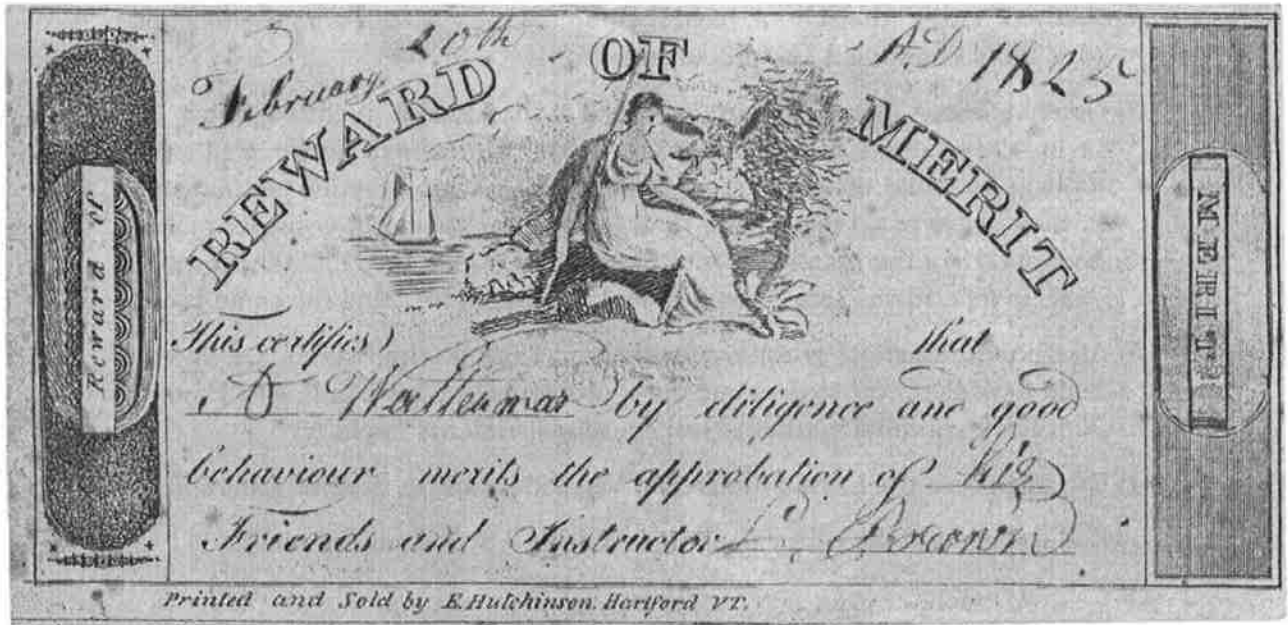 February 20th A.D. 1825
REWARD OF MERIT
Reward of
MERIT
This certifies that
by diligence and good
behaviour merits the approbation of his
Friends and Instructor Brown
Printed and Sold by E. Hutchinson. Hartford VT.